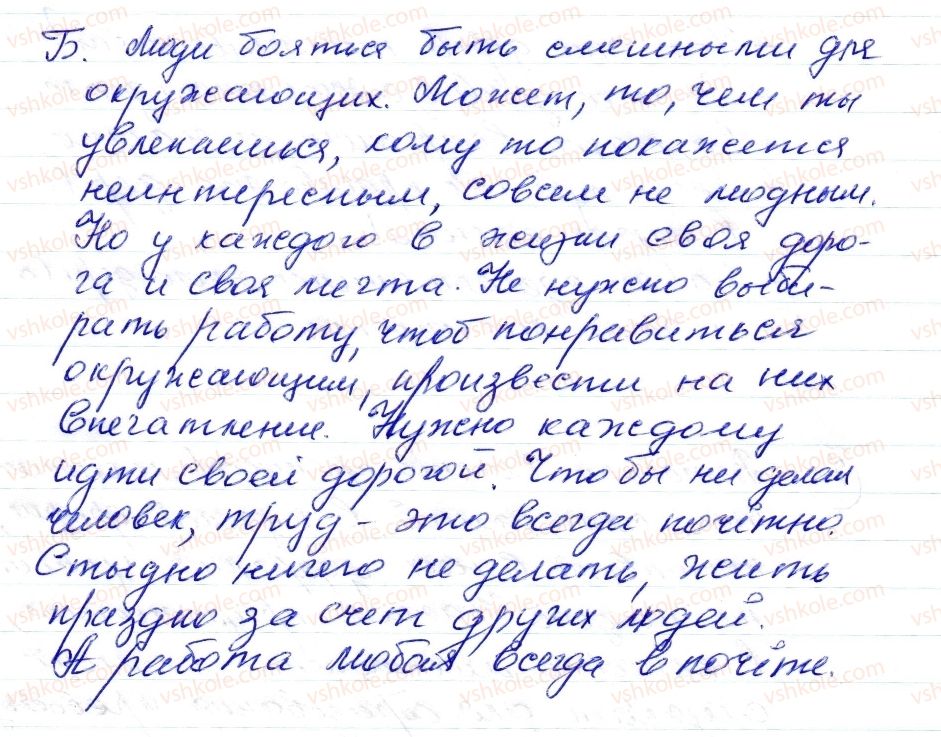 Б. Люди бояться быть смешными для
окружающих. Может, то, чем ты
увлекаешься, кому то покажется
неинтересным, совсем не модным.
Но у каждого в жизни своя доро-
га и своя мечта. Не нужно выби-
рать работу, чтоб понравиться
окружающим, произвести на них
впечатление. Нужно каждому
идти своей дорогой. Что бы ни делал
человек, труд - это всегда почётно.
Стыдно ничего не делать, жить
праздно за счет других людей.
А работа любая всегда в почёте.